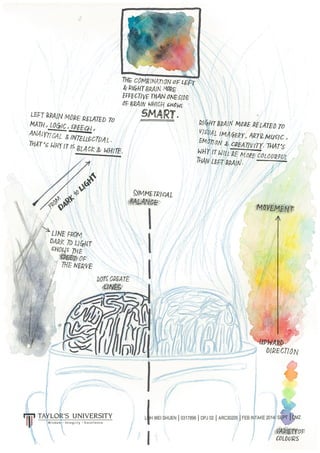 THE COMBINATION OF LEFT
& RIGHT BRAIN MORE
EFFECTIVE THAN ONE SIDE
OF BRAIN WHICH SHOWS
SMART.
LEFT BRAIN MORE RELATED TO
MATH, LOGIC, SPEECH,
ANALYTICAL & INTELLECTUAL.
THAT'S WHY IT IS BLACK & WHITE.
RIGHT BRAIN MORE RELATED TO
VISUAL IMAGERY, ART & MUSIC,
EMOTION & CREATIVITY. THAT'S
WHY IT WILL BE MORE COLOURFUL
THAN LEFT BRAIN.
FROM DARK TO LIGHT
SYMMETRICAL
BALANCE
MOVEMENT
LINE FROM
DARK TO LIGHT
SHOWS THE
SPEED OF
THE NERVE
DOTS CREATE
LINES
UPWARD
DIRECTION
TAYLOR'S UNIVERSITY
Wisdom · Integrity · Excellence
LOH WEI SHUEN | 0317996 | DPJ 02 | ARC30205 | FEB INTAKE 2014
VARIETY OF
COLOURS